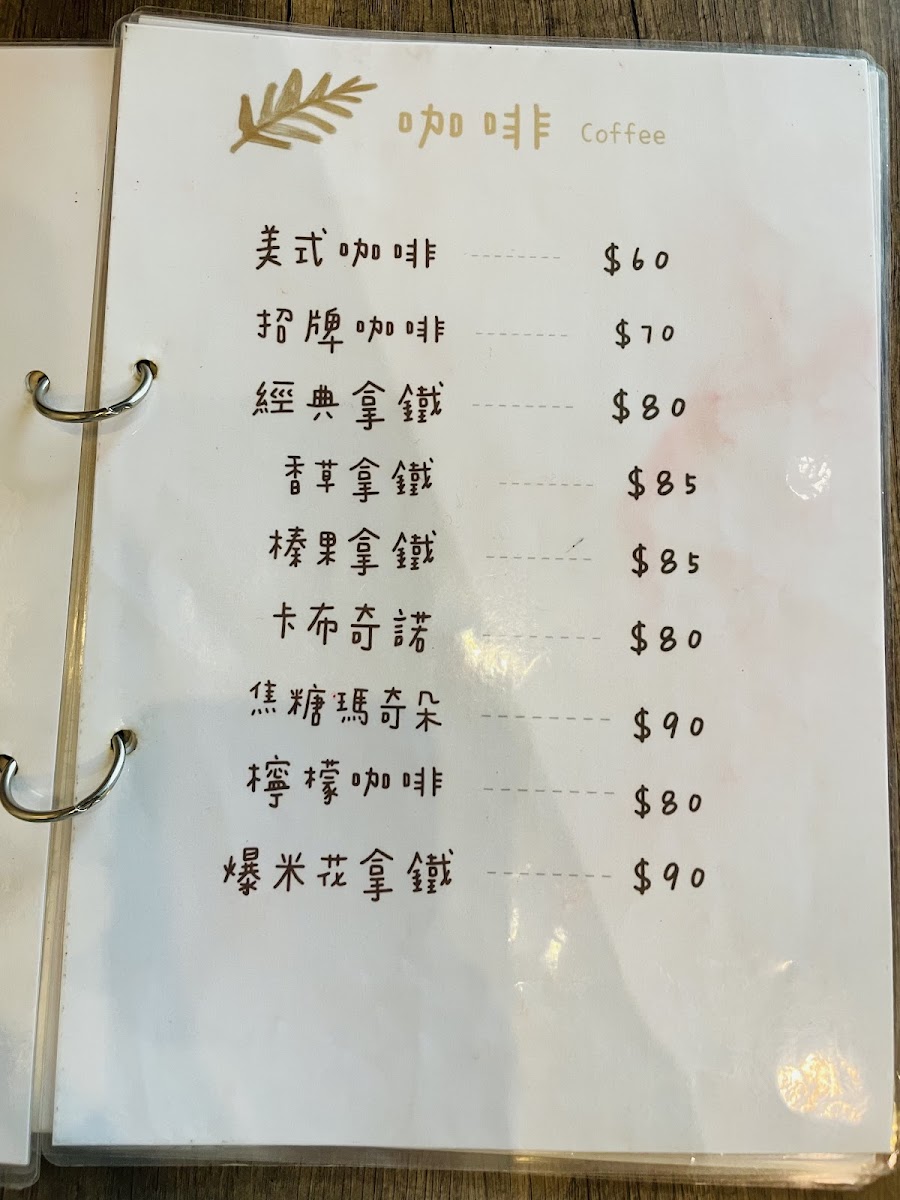 咖啡 Coffee
美式咖啡 --------- $60
招牌咖啡 --------- $70
經典拿鐵 --------- $80
香草拿鐵 --------- $85
榛果拿鐵 --------- $85
卡布奇諾 --------- $80
焦糖瑪奇朵 --------- $90
檸檬咖啡 --------- $80
爆米花拿鐵 --------- $90